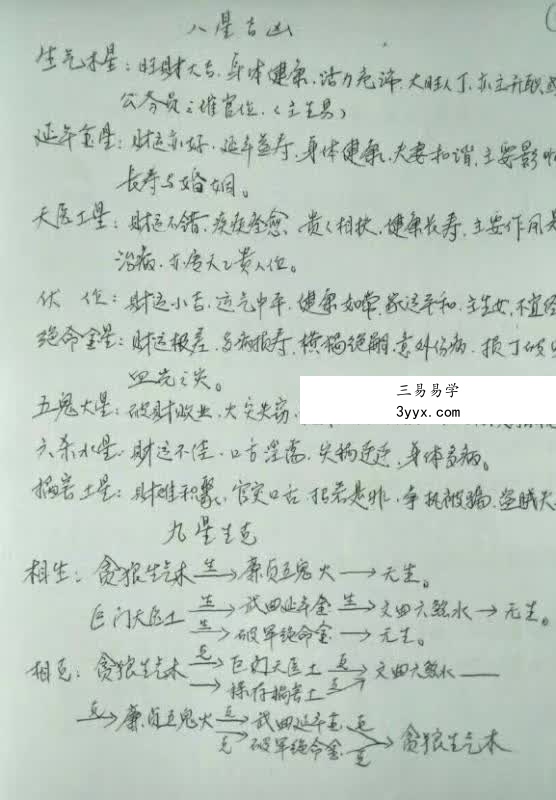 八星吉凶
生气木星：旺财大吉，身体健康，活力充沛，大旺人丁，亦主升职，
公务员之催官位。（主生男）
延年金星：财运亦好，延年益寿，身体健康，夫妻和谐，主要影响
长寿与婚姻。
天医土星：财运不错，疾疾痊愈，贵人相扶，健康长寿，主要作用是
治病，亦为天乙贵人位。
伏位：财运小吉，运气中平，健康如常，家运平和，主生女，不宜
绝命金星：财运极差，多病损寿，横祸绝嗣，意外伤病，损丁破
血光之灾。
五鬼火星：破财败业，火灾失窃，
三易易学
3yyx.com
六杀水星：财运不佳，口舌淫荡，失祸连连，身体多病。
祸害土星：财难积聚，官灾口舌，招惹是非，争执被骗，盗贼
九星生克
相生：贪狼生气木 生→ 廉贞五鬼火 → 无生。
巨门天医土 生→ 武曲延年金 生→ 文曲六煞水 → 无生。
生→ 破军绝命金 → 无生。
相克：贪狼生气木 克→ 巨门天医土 克→ 文曲六煞水 —
→ 禄存祸害土 克→
克→ 廉贞五鬼火 克→ 武曲延年金 克→ 贪狼生气木
克→ 破军绝命金 克→